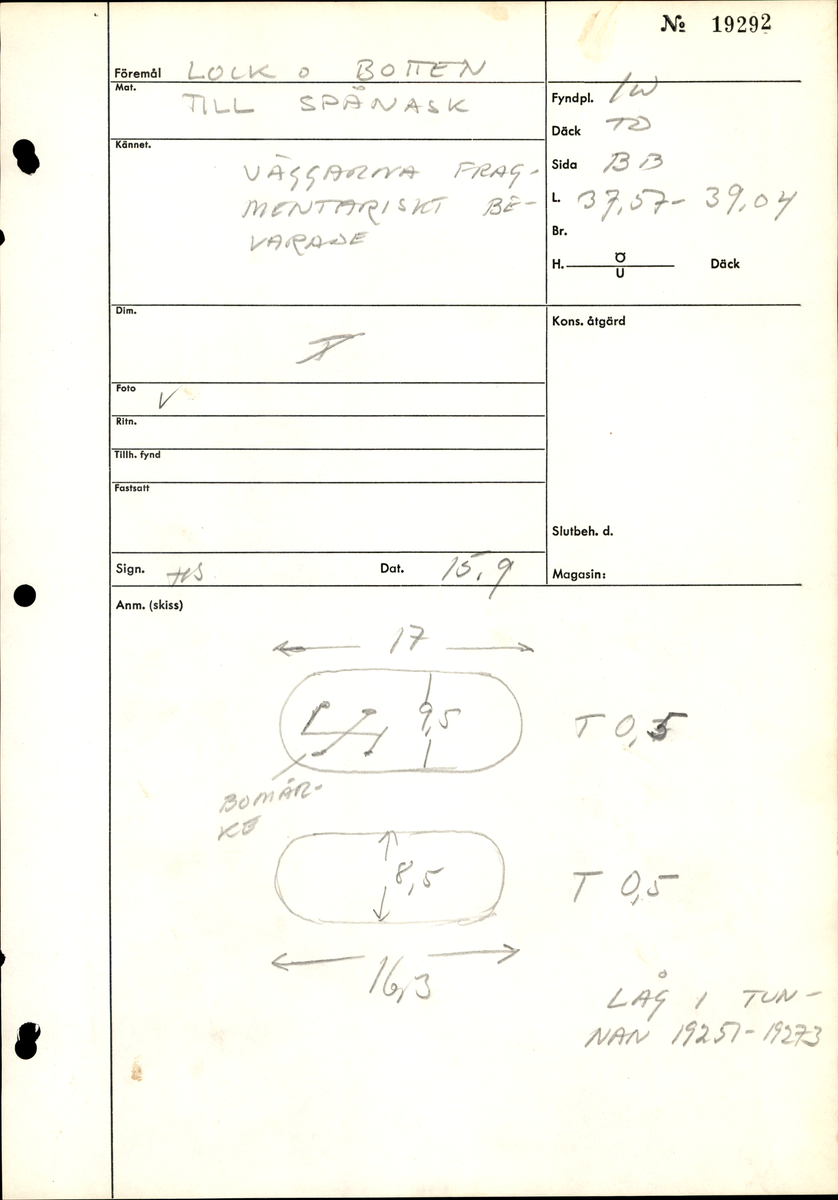 № 19292
Föremål LOCK O BOTTEN
Mat. TILL SPÅNASK
Kännet.
VÄGGARNA FRAG-
MENTARISKT BE-
VARADE
Fyndpl. IW
Däck TD
Sida BB
L. 37,57- 39,04
Br.
H. Ö Däck
U
Dim.
Kons. åtgärd
Foto V
Ritn.
Tillh. fynd
Fastsatt
Slutbeh. d.
Sign. HS Dat. 15.9
Magasin:
Anm. (skiss)
17
9,5 T 0,5
BOMÄR-
KE
8,5 T 0,5
16,3
LÅG I TUN-
NAN 19251-19273